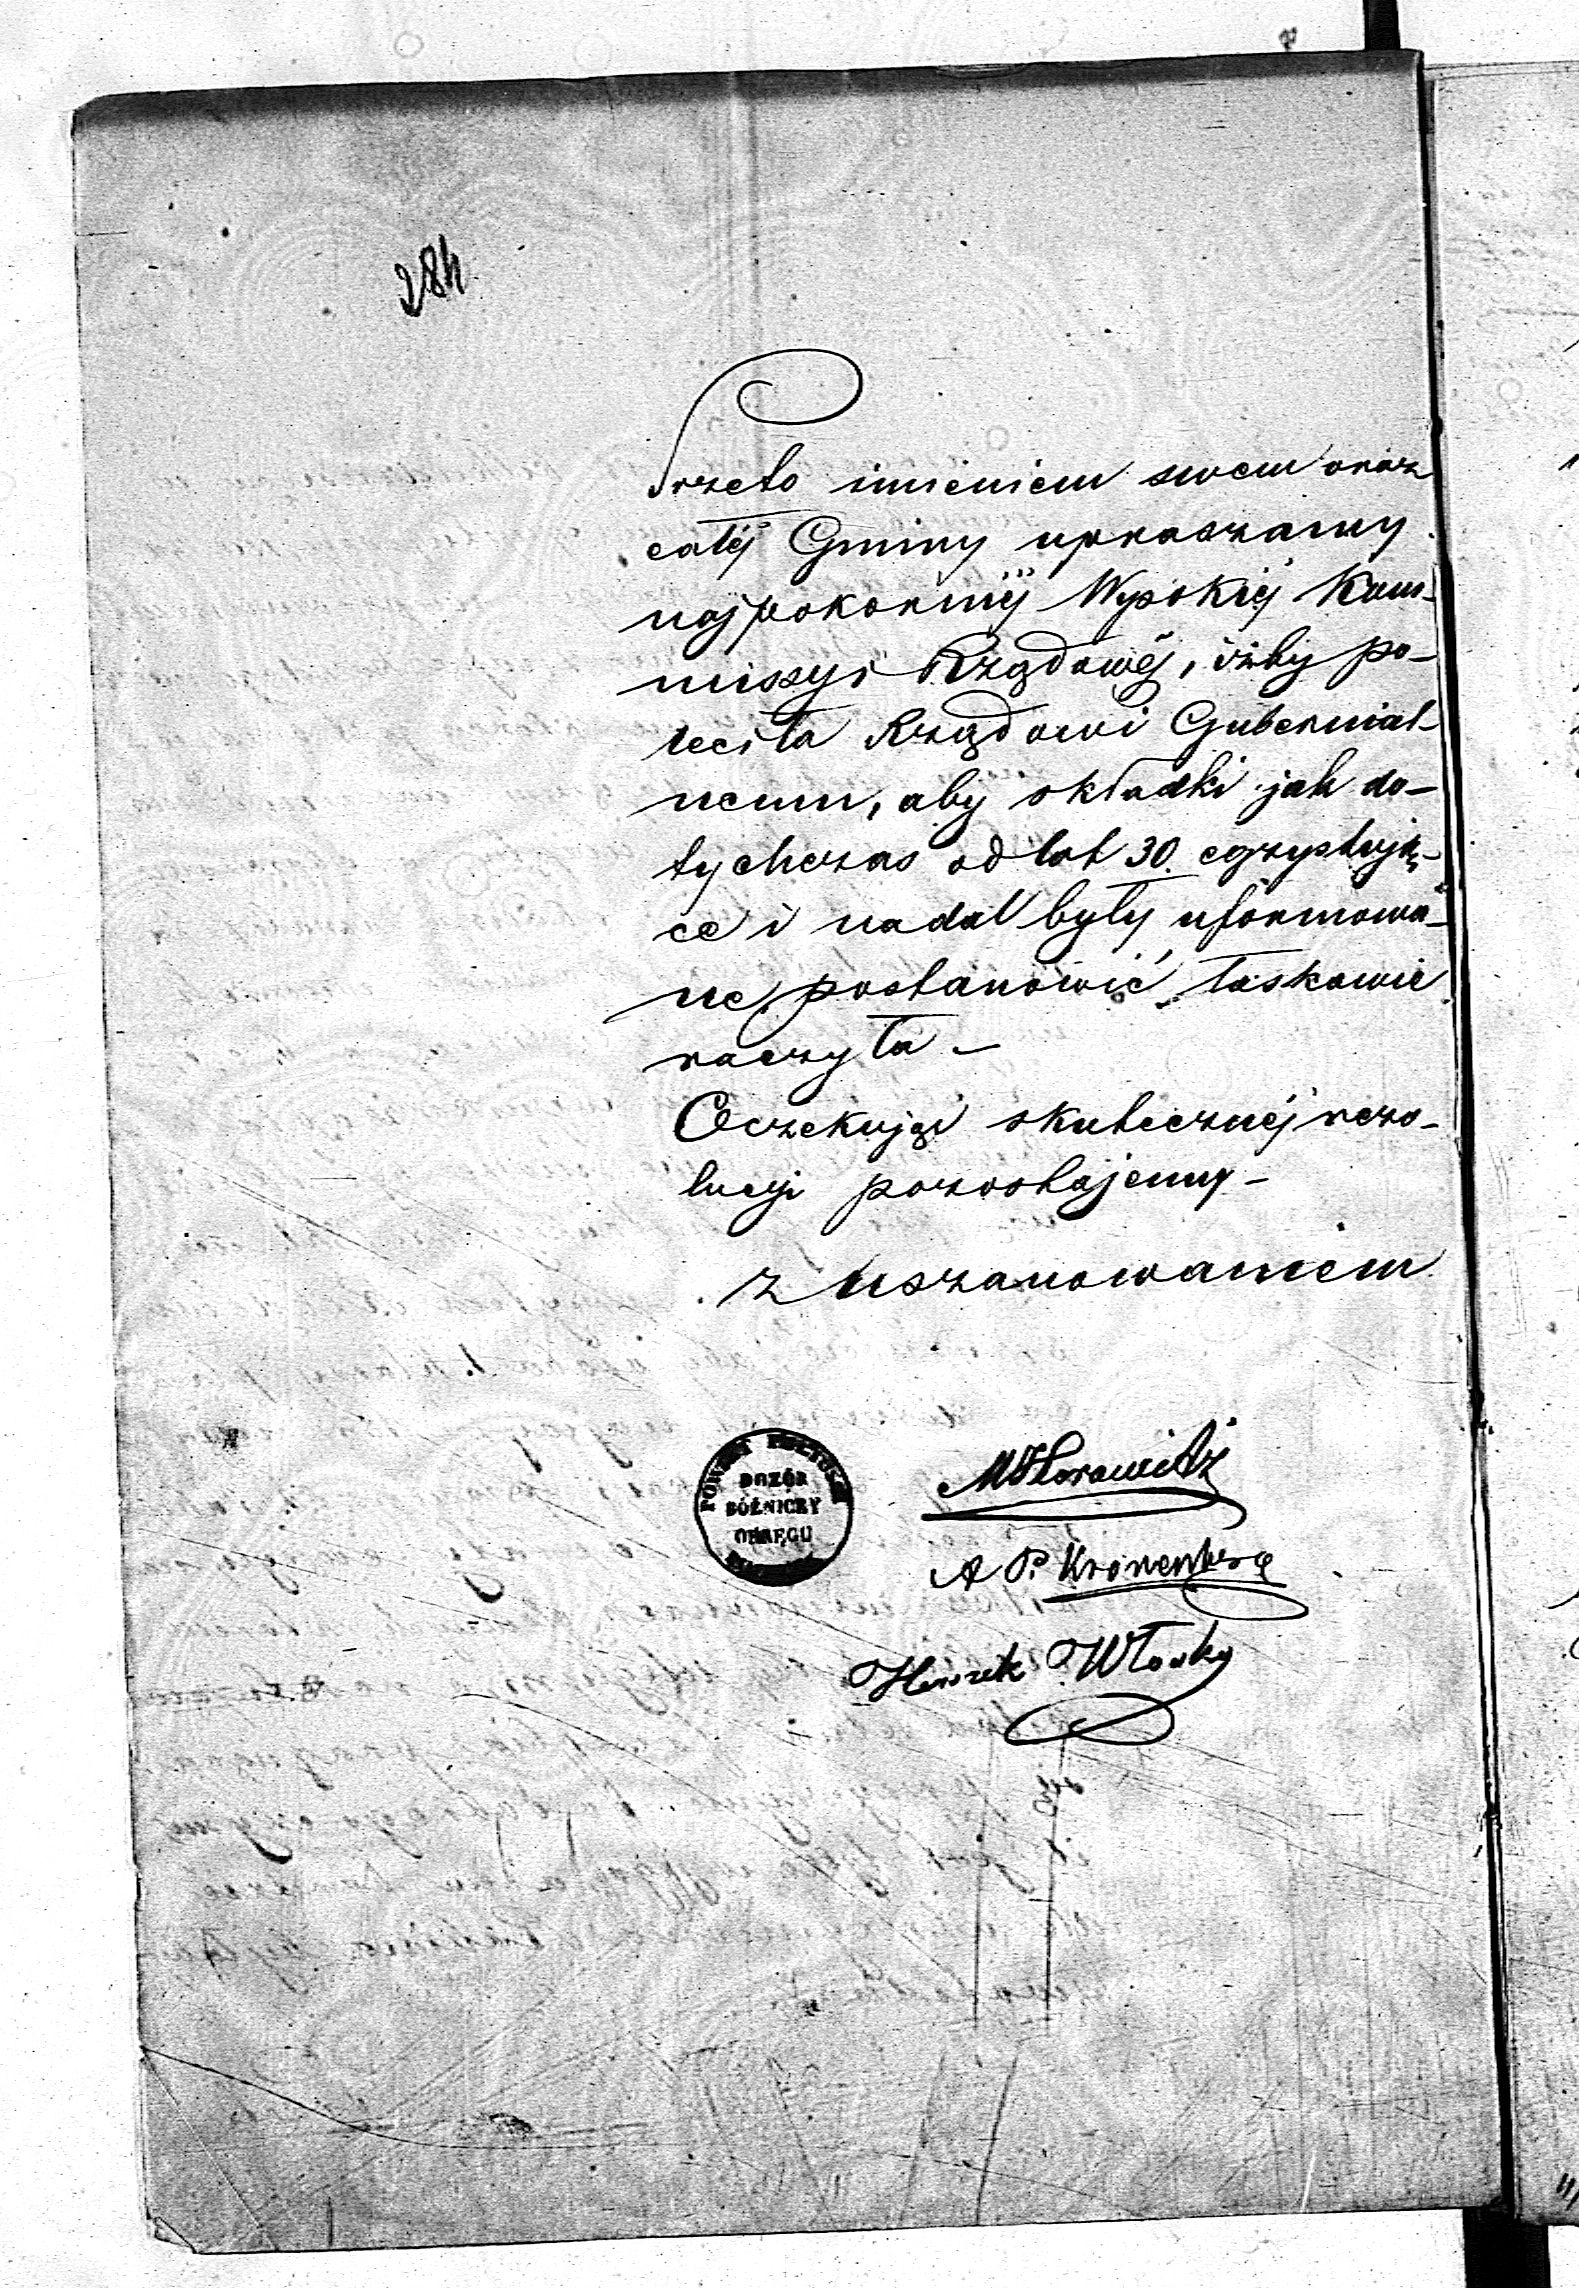 284
Przeto imieniem swem oraz
całéj Gminy upraszamy
najpokorniéj Wysokiéj Kom-
missyi Rządowéj, iżby po-
leciła Rządowi Gubernial-
nemu, aby składki jak do-
tychczas od lat 30. egzystują-
ce i nadal były uformowa-
ne, postanowić łaskawie
raczyła –
Oczekując skutecznéj rezo-
lucyi pozostajemy –
z uszanowaniem
POWIAT PUŁTUSKI
DOZÓR
BÓŻNICZY
OKRĘGU
M Horowitz
A P. Kronenberg
Henrek Włosky